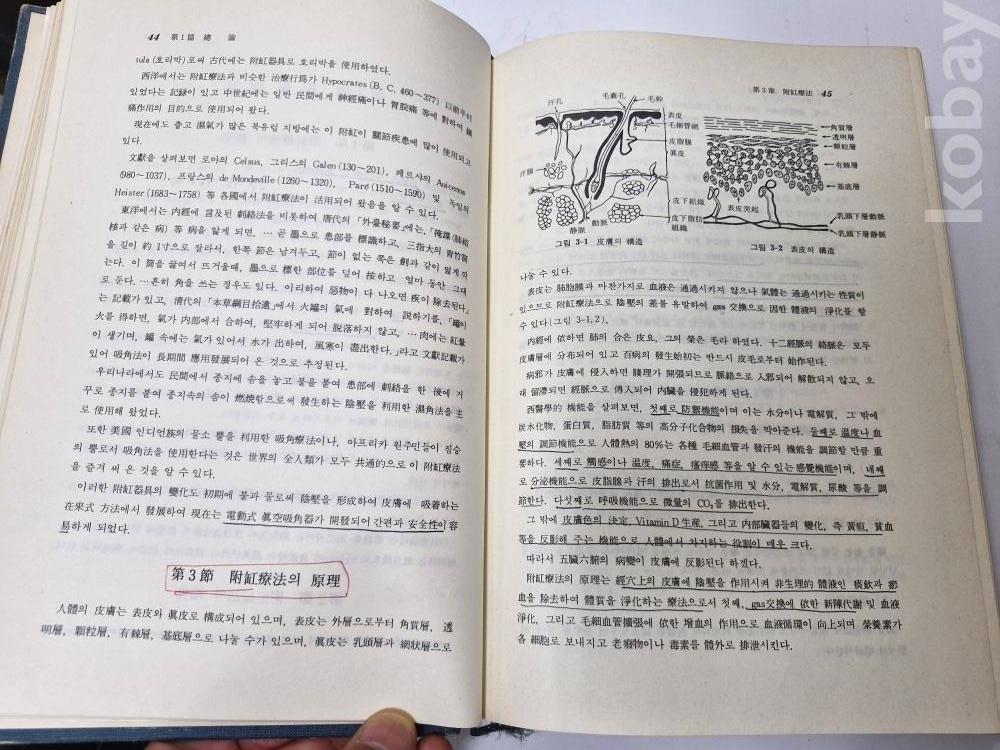 44 第1篇 總 論
tula (호리박)로써 古代에는 附缸器具로 호리박을 使用하였다.
西洋에서는 附缸療法과 비슷한 治療行爲가 Hypocrates (B. C. 460~377) 以前부터
있었다는 記錄이 있고 中世紀에는 일반 民間에게 神經痛이나 胃脘痛 等에 對하여 鎭
痛作用의 目的으로 使用되어 왔다.
現在에도 춥고 濕氣가 많은 북유럽 지방에는 이 附缸이 關節疾患에 많이 使用되고
있다.
文獻을 살펴보면 로마의 Celsus, 그리스의 Galen (130~201), 페르샤의 Avicennus
(980~1037), 프랑스의 de Mondeville (1260~1320), Paré (1510~1590) 및 독일의
Heister (1683~1758) 等 各國에서 附缸療法이 活用되어 왔음을 알 수 있다.
東洋에서는 內經에 言及된 刺絡法을 비롯하여 唐代의 「外臺秘要」에는, 「㾨㿈 (肺結
核과 같은 病) 等 病을 앓게 되면, … 곧 墨으로 患部를 標識하고, 三指大의 靑竹筒
을 길이 約 1寸으로 잘라서, 한쪽 節은 남겨두고, 節이 없는 쪽은 劍과 같이 엷게 깍
는다. 이 筒을 끓여서 뜨거울때, 墨으로 標한 部位를 덮어 按하고 얼마 동안 그대
로 둔다. …흔히 角을 쓰는 경우도 있다. 이리하여 惡物이 다 나오면 疾이 除去된다」
는 記載가 있고, 淸代의 「本草綱目拾遺」에서 火罐의 氣에 對하여 說하기를, 「罐이
火를 得하면, 氣가 內部에서 合하여, 堅牢하게 되어 脫落하지 않고, …肉에는 紅暈
이 생기며, 罐 속에는 氣가 있어서 水가 出하여, 風寒이 盡出한다.」라고 文獻記載가
있어 吸角法이 長期間 應用發展되어 온 것으로 추정된다.
우리나라에서도 民間에서 종지에 솜을 놓고 불을 붙여 患部에 刺絡을 한 後에 거
꾸로 종지를 붙여 종지속의 솜이 燃燒함으로써 發生하는 陰壓을 利用한 濕角法을 主
로 使用해 왔었다.
또한 美國 인디언族의 물소 뿔을 利用한 吸角療法이나, 아프리카 원주민들이 짐승
의 뿔로서 吸角法을 使用한다는 것은 世界의 全人類가 모두 共通的으로 이 附缸療法
을 즐겨 써 온 것을 알 수 있다.
이러한 附缸器具의 變化도 初期에 불과 물로써 陰壓을 形成하여 皮膚에 吸着하는
在來式 方法에서 發展하여 現在는 電動式 眞空吸角器가 開發되어 간편과 安全性이 容
易하게 되었다.
第3節 附缸療法의 原理
人體의 皮膚는 表皮와 眞皮로 構成되어 있으며, 表皮는 外層으로부터 角質層, 透
明層, 顆粒層, 有棘層, 基底層으로 나눌 수가 있으며, 眞皮는 乳頭層과 網狀層으로
第3章 附缸療法 45
汗孔
毛囊孔
毛幹
表皮
毛細管網
皮脂腺
眞皮
汗腺
皮下組織
皮下脂肪
組織
動脈
靜脈
그림 3-1 皮膚의 構造
角質層
透明層
顆粒層
有棘層
基底層
表皮突起
乳頭下層動脈
乳頭下層靜脈
그림 3-2 表皮의 構造
나눌 수 있다.
表皮는 肺胞膜과 마찬가지로 血液은 通過시키지 않으나 氣體는 通過시키는 性質이
있으므로 附缸療法으로 陰壓의 差를 유발하여 gas 交換으로 因한 體液의 淨化를 할
수 있다 (그림 3-1, 2).
內經에 依하면 肺의 合은 皮요, 그의 榮은 毛라 하였다. 十二經脈의 絡脈은 모두
皮膚層에 分布되어 있고 百病의 發生始初는 반드시 皮毛로부터 始作된다.
病邪가 皮膚에 侵入하면 腠理가 開張되므로 脈絡으로 入邪되어 解散되지 않고, 오
래 留滯되면 經脈으로 傳入되어 內臟을 侵犯하게 된다.
西醫學的 機能을 살펴보면, 첫째로 防禦機能이며 이는 水分이나 電解質, 그 밖에
炭水化物, 蛋白質, 脂肪質 等의 高分子化合物의 損失을 막아준다. 둘째로 溫度나 血
壓의 調節機能으로 人體熱의 80%는 各種 毛細血管과 發汗의 機能을 調節할 만큼 重
要하다. 세째로 觸感이나 溫度, 痛症, 瘙痒感 等을 알 수 있는 感覺機能이며, 네째
로 分泌機能으로 皮脂腺과 汗의 排出로서 抗菌作用 및 水分, 電解質, 尿酸 等을 調
節한다. 다섯째로 呼吸機能으로 微量의 CO₂를 排出한다.
그 밖에 皮膚色의 決定, Vitamin D 生産, 그리고 內部臟器들의 變化, 즉 黃疸, 貧血
等을 反影해 주는 機能으로 人體에서 차지하는 役割이 매우 크다.
따라서 五臟六腑의 病變이 皮膚에 反影된다 하겠다.
附缸療法의 原理는 經穴上의 皮膚에 陰壓을 作用시켜 非生理的 體液인 痰飮과 瘀
血을 除去하여 體質을 淨化하는 療法으로서 첫째, gas交換에 依한 新陳代謝 및 血液
淨化, 그리고 毛細血管擴張에 依한 增血의 作用으로 血液循環이 向上되며 榮養素가
各 細胞로 보내지고 老癈物이나 毒素를 體外로 排泄시킨다.
kobay